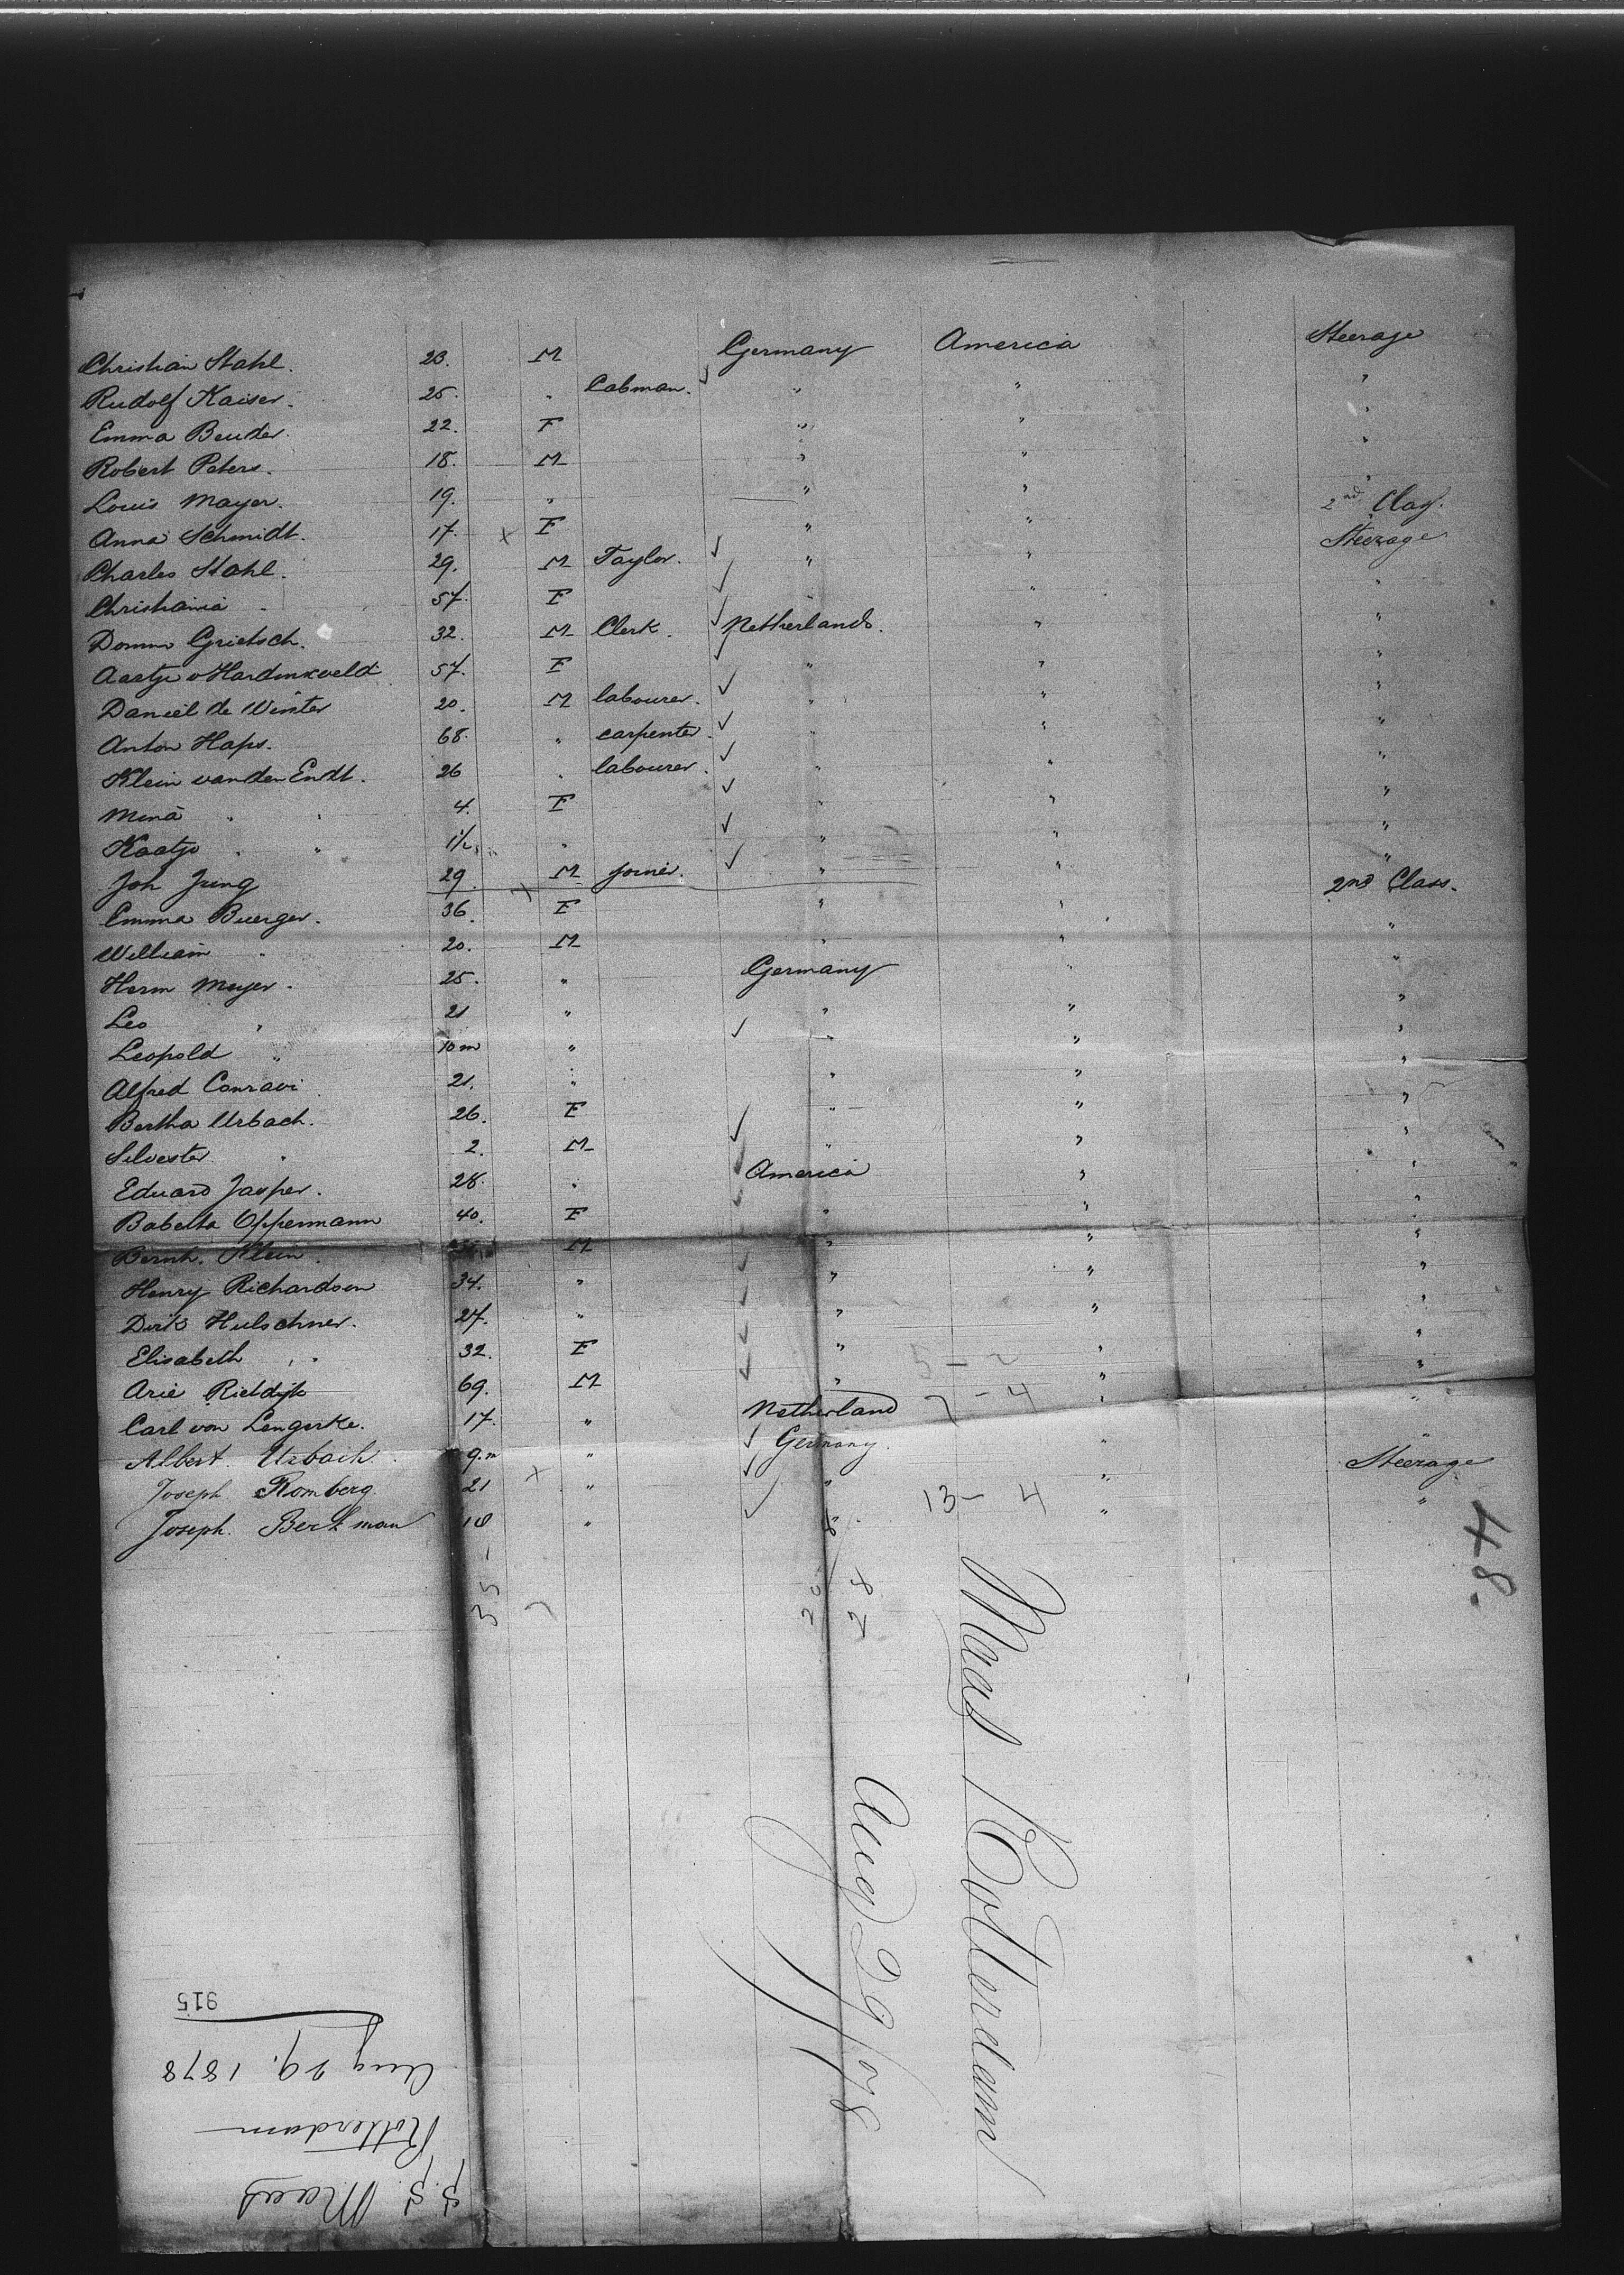 Christian Stahl. 23. M Germany America Steerage
Rudolf Kaiser. 25. " Cabman. " " "
Emma Beuder. 22. F " " "
Robert Peters. 18. M " " "
Louis Mayer. 19. " " " "
Anna Schmidt. 17. x F " " 2nd Class.
Charles Stahl. 29. M Taylor. " " Steerage
Christiania " 57. F " " "
Grietsch. 32. M Clerk. Netherlands. " "
Aaatje v Hardenxveld 57. F " " "
Daniel de Winter 20. M labourer. " " "
Anton Haps. 68. " carpenter. " " "
Klein van den Endt. 26 " labourer. " " "
Mina " " 4. F " " "
Kaatje " " " " " "
Joh Jung 29 M joiner. " " "
Emma Buerger. 36. F " " 2nd Class.
William " 20. M " " "
Herm Meyer. 25. " Germany " "
Leo " 21 " " " "
Leopold " 10 m " " " "
Alfred Conravi 21. " " " "
Bertha Urbach. 26. F " " "
Silvester " 2. M " " "
Eduard Jasper. 28. " America " "
Babetta Oppermann 40. F " " "
Bernh. Klein. M " " "
Henry Richardson 34. " " " "
Dirk Hulschner. 27. " " " "
Elisabeth " " 32. F " " "
Arie Rietdijk 69. M " " "
Carl von Lengerke. 17. " Netherland " "
Albert. Urbach. 9. m " Germany. " "
Joseph Romberg. 21 x " " " Steerage
Joseph. Berkman 18 " " " "
5 - 2
7 - 4
13 - 4
48.
35 -
20
28
Maas Rotterdam
Aug 29/78
S. S. Maas
Rotterdam
Aug 29. 1878
915